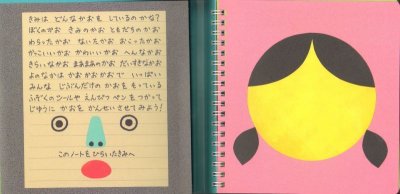 きみは どんなかおを しているのかな?
ぼくのかお きみのかお ともだちのかお
わらったかお ないたかお おこったかお
かっこいいかお かわいいかお へんなかお
きらいなかお まあまあのかお だいすきなかお
よのなかは かおかおかおで いっぱい
みんな じぶんだけの かおを もっている
ふぞくのシールや えんぴつ ペンを つかって
じゆうに かおを かんせいさせてみよう!
このノートを ひらいたきみへ